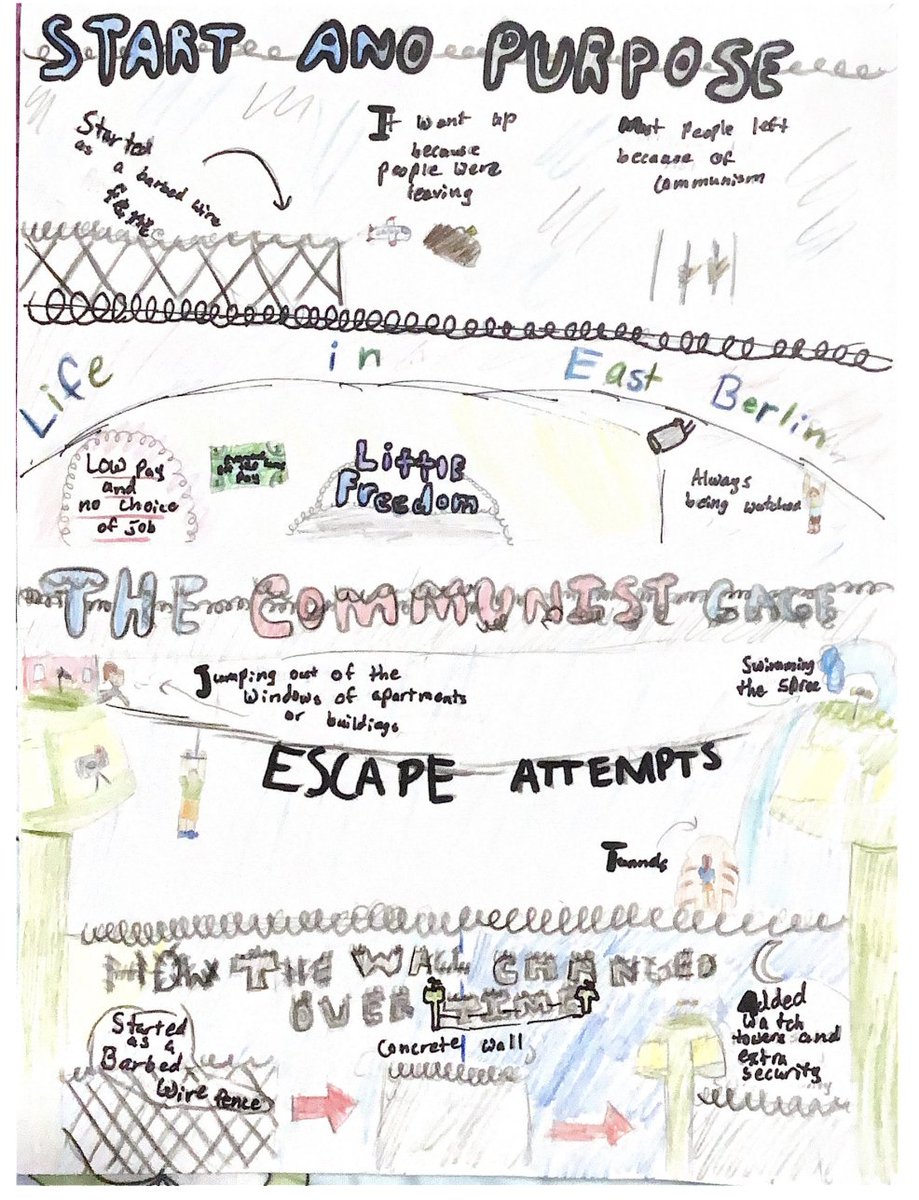 START AND PURPOSE
Started
as
a barbed wire
fence
It want up
because
people were
leaving
Most people left
because of
communism
Life in East Berlin
LOW Pay
and
no choice
of Job
Pay
Little
Freedom
Always
being watched
THE COMMUNIST CAGE
Jumping out of the
windows of apartments
or buildings
Swimming
the Spree
ESCAPE ATTEMPTS
Tunnels
HOW THE WALL CHANGED
OVER TIME
Started
as a
Barbed
Wire fence
Concrete wall
Added
watch
towers and
extra
security